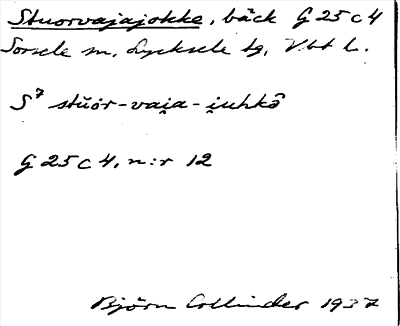 Stuorvajajokke, bäck G 25 c 4
Sorsele sn, Lycksele tg, Vbt l.
S⁷ stŭor-vai̯a-i̯uhkə̑
G 25 c 4, n:r 12
Björn Collinder 1937